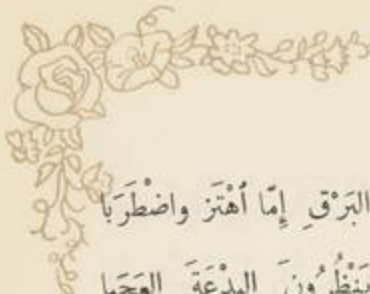 البَرْقِ إِمَّا ٱهْتَز واضْطَرَبا
يَنْظُرُونَ البِدْعَةَ العَجَبا